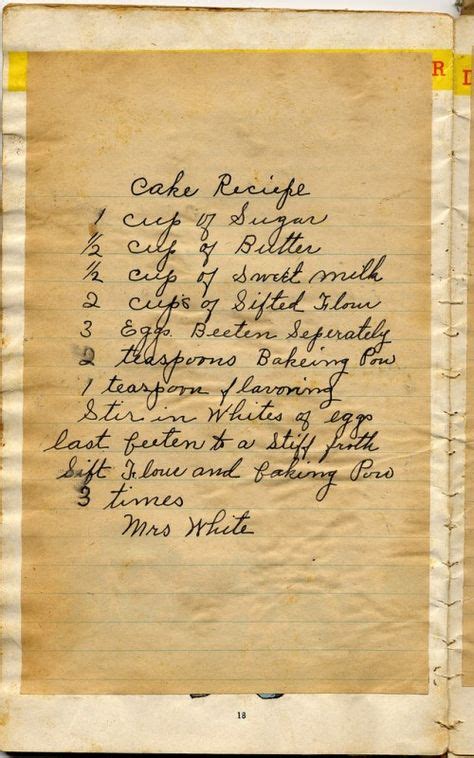 R D
Cake Reciepe
1 cup of Sugar
½ cup of Butter
½ cup of Sweet Milk
2 cups of Sifted Flour
3 Eggs Beeten Seperately
2 teaspoons Bakeing Pow
1 teaspoon flavoring
Stir in Whites of eggs
last beeten to a Stiff froth
Sift Flour and baking Pow
3 times
Mrs White
18